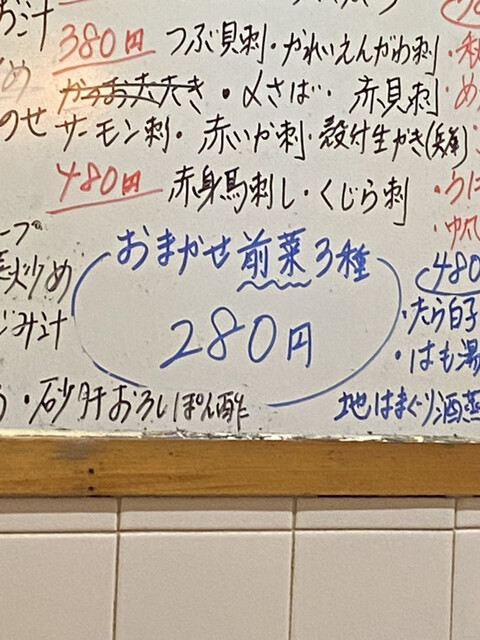 380円 つぶ貝刺・かれいえんがわ刺
かつおたたき・〆さば・赤貝刺・め
のせ サーモン刺・赤いか刺・殻付生かき(兵庫)
480円 赤身馬刺し・くじら刺 ・うに
おまかせ前菜3種
280円
炒め
み汁
・砂肝おろしぽん酢
480
・たら白子
・はも湯
地はまぐり酒蒸